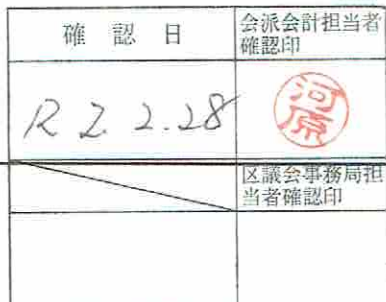 確認日
会派会計担当者
確認印
R 2. 2.28
河原
区議会事務局担
当者確認印